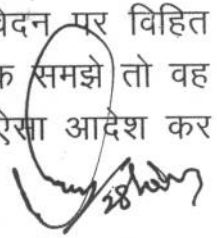 वेदन पर विहित
क समझे तो वह
ऐसा आदेश कर